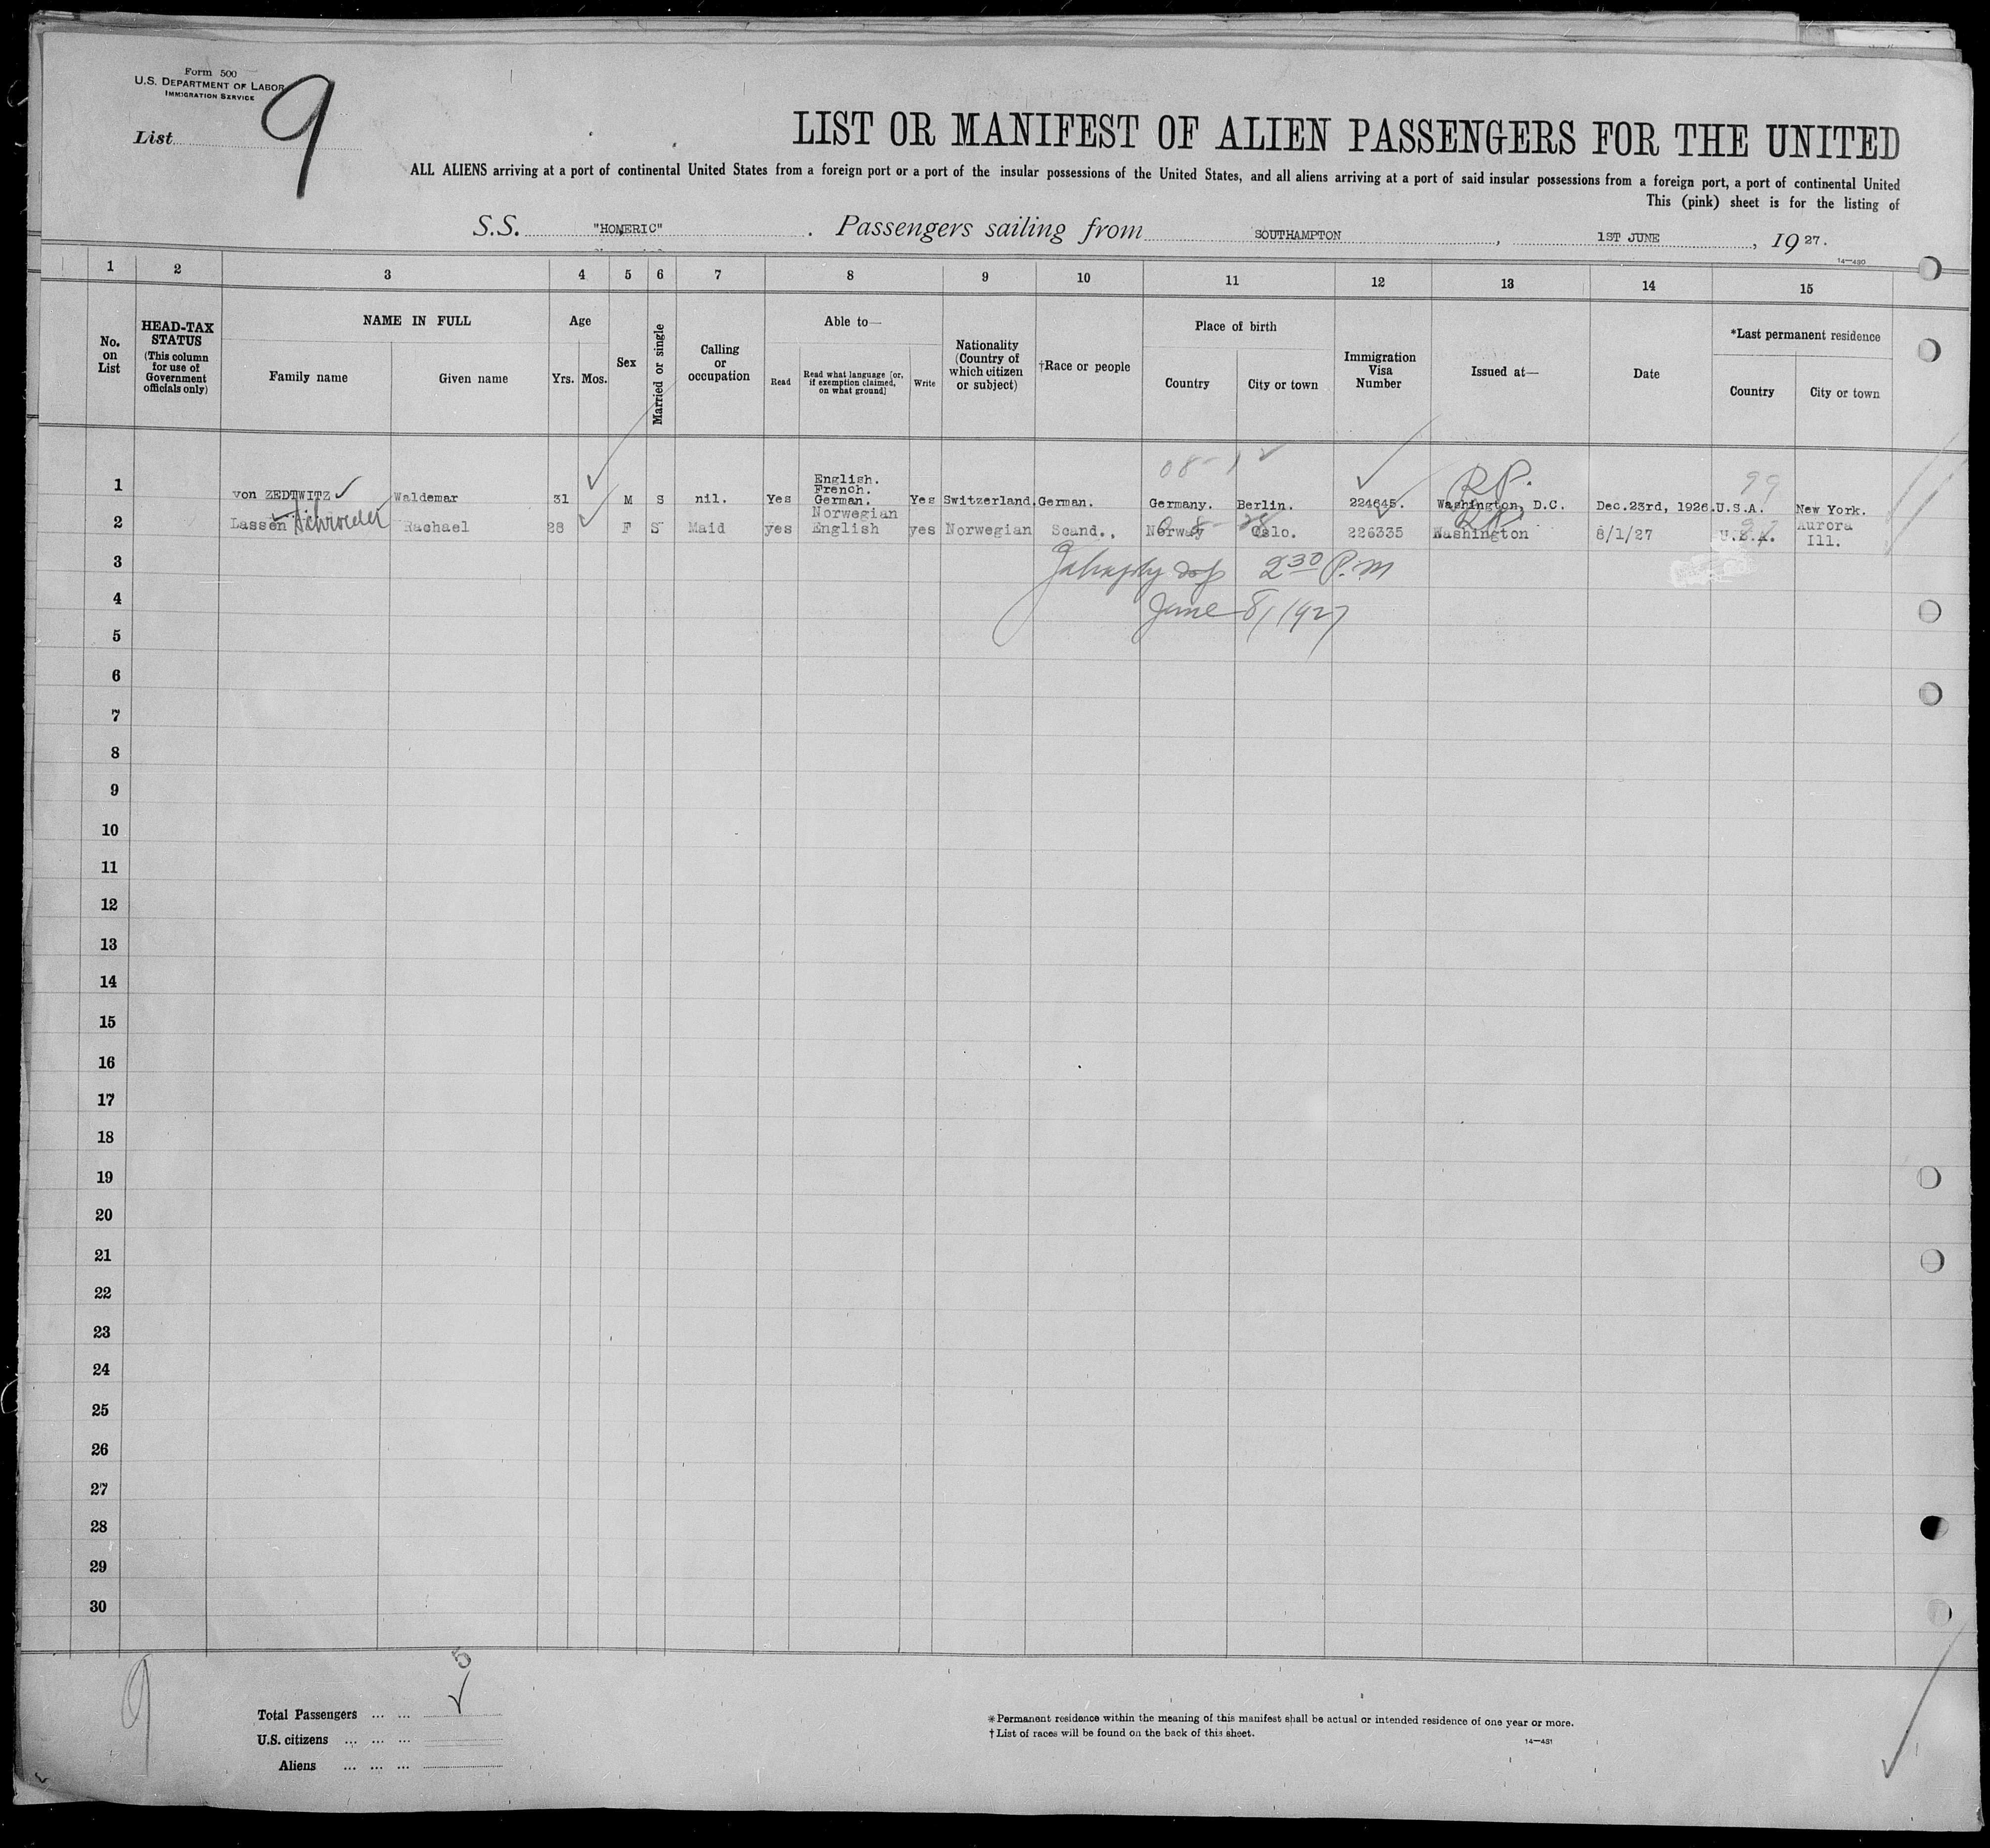 Form 500
U.S. DEPARTMENT OF LABOR
IMMIGRATION SERVICE
List 9
LIST OR MANIFEST OF ALIEN PASSENGERS FOR THE UNITED
ALL ALIENS arriving at a port of continental United States from a foreign port or a port of the insular possessions of the United States, and all aliens arriving at a port of said insular possessions from a foreign port, a port of continental United
This (pink) sheet is for the listing of
S.S. "HOMERIC" . Passengers sailing from SOUTHAMPTON , 1ST JUNE , 19 27.
14—430
1 2 3 4 5 6 7 8 9 10 11 12 13 14 15
No. on List
HEAD-TAX STATUS (This column for use of Government officials only)
NAME IN FULL
Family name
Given name
Age
Yrs. Mos.
Sex
Married or single
Calling or occupation
Able to—
Read
Read what language [or, if exemption claimed, on what ground]
Write
Nationality (Country of which citizen or subject)
†Race or people
Place of birth
Country
City or town
Immigration Visa Number
Issued at—
Date
*Last permanent residence
Country
City or town
08-1 99
1 von ZEDTWITZ Waldemar 31 M S nil. Yes English. French. German. Yes Switzerland. German. Germany. Berlin. 224645. R.P. Washington, D.C. Dec.23rd, 1926. U.S.A. New York.
2 Lassen Schroeder Rachael 28 F S Maid yes Norwegian English yes Norwegian Scand.. Norway Oslo. 226335 Washington 8/1/27 U.S.A. Aurora Ill.
3 2 30 P.M
4 June 8/1927
5
6
7
8
9
10
11
12
13
14
15
16
17
18
19
20
21
22
23
24
25
26
27
28
29
30
9
5
Total Passengers ... ...
U.S. citizens ... ... ...
Aliens ... ... ...
*Permanent residence within the meaning of this manifest shall be actual or intended residence of one year or more.
†List of races will be found on the back of this sheet.
14—451